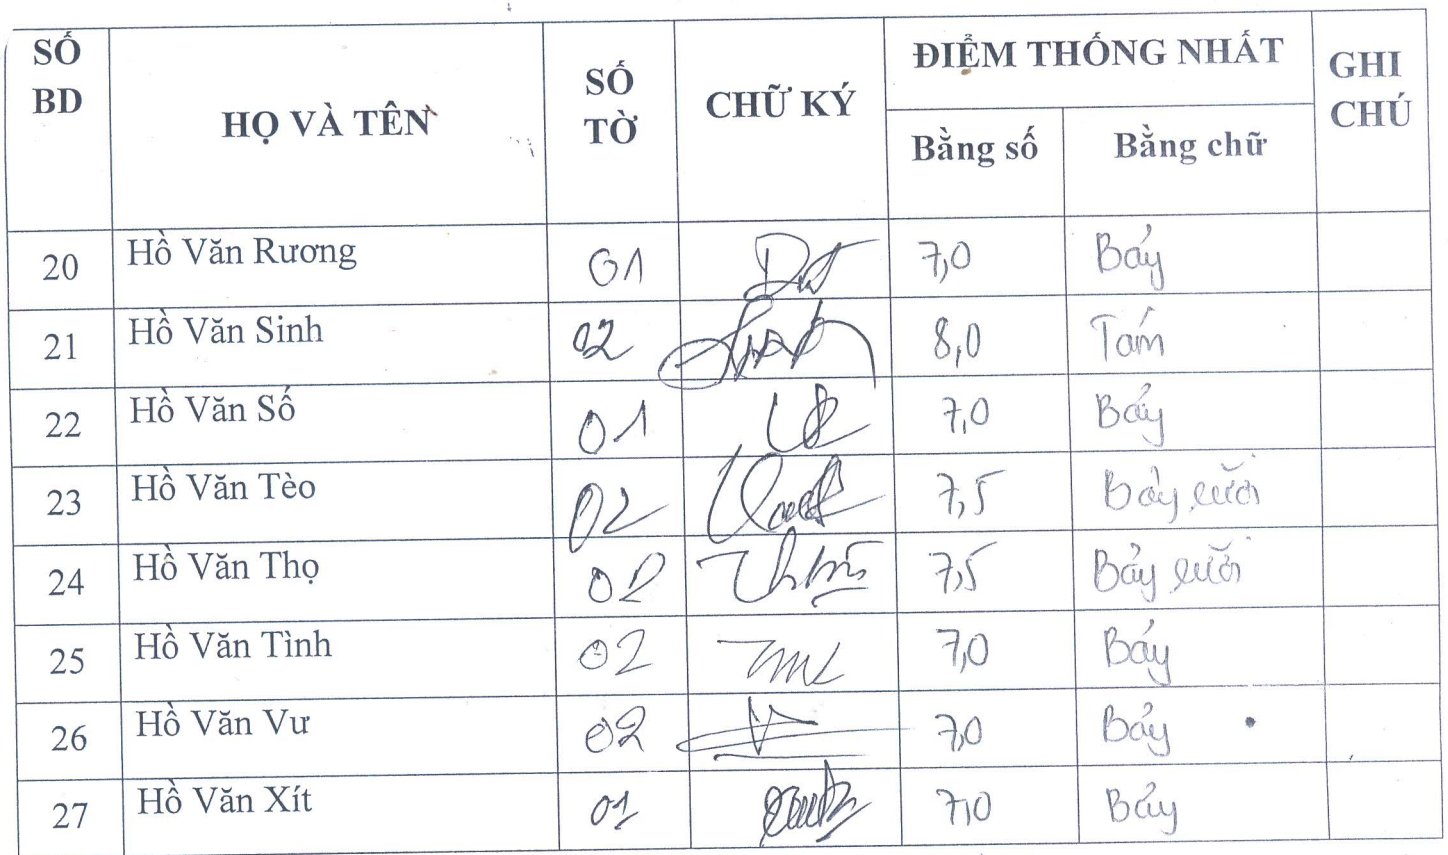 SỐ BD HỌ VÀ TÊN SỐ TỜ CHỮ KÝ ĐIỂM THỐNG NHẤT GHI CHÚ
Bằng số Bằng chữ
20 Hồ Văn Rương 01 7,0 Bảy
21 Hồ Văn Sinh 02 8,0 Tám
22 Hồ Văn Số 01 7,0 Bảy
23 Hồ Văn Tèo 02 7,5 Bảy rưỡi
24 Hồ Văn Thọ 02 7,5 Bảy rưỡi
25 Hồ Văn Tình 02 7,0 Bảy
26 Hồ Văn Vư 02 7,0 Bảy
27 Hồ Văn Xít 01 7,0 Bảy